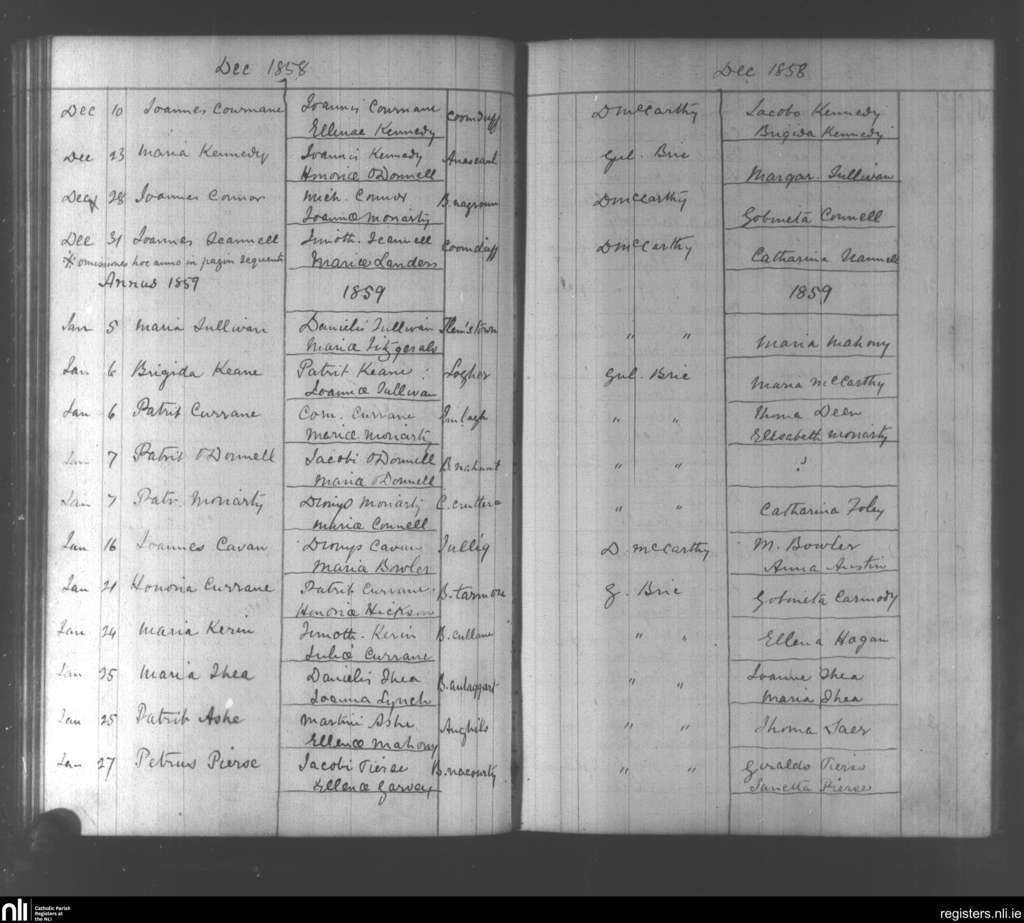 Dec 1858
Dec 10 Joannes Cournane Joannis Cournane Coomduff
Ellenae Kennedy
Dec 23 Maria Kennedy Joannis Kennedy Anascaul
Honoriæ O'Donnell
Dec 28 Joannes Connor Mich. Connor
Joannæ Moriarty
Dec 31 Joannes Jeannell Timoth. Jeannell Coomduff
Mariæ Landers
hoc anno in pagin sequenti
Annus 1859 1859
Jan 5 Maria Sullivan Danielis Sullivan
Mariæ Fitzgerald
Jan 6 Brigida Keane Patrit Keane Logher
Joannæ Sullivan
Jan 6 Patrit Currane Corn. Currane Emlagh
Mariæ Moriarty
Jan 7 Patrit O'Donnell Jacobi O'Donnell
Maria O'Donnell
Jan 7 Patr. Moriarty Dionys Moriarty
Mariæ Connell
Jan 16 Joannes Cavan Dionys Cavan Tullig
Maria Bowler
Jan 21 Honoria Currane Patrit Currane B. tarmon
Honoriæ Hickson
Jan 24 Maria Kerin Timoth. Kerin B. cullane
Juliæ Currane
Jan 25 Maria Shea Danielis Shea
Joanna Lynch
Jan 25 Patrit Ashe Martini Ashe Anghils
Ellenæ Mahony
Jan 27 Petrus Pierse Jacobi Pierse B. nacourty
Ellenæ Garvey
Dec 1858
D McCarthy Jacobo Kennedy
Brigida Kennedy
Gul. Bric
Margar. Sullivan
D McCarthy
Gobineta Connell
D McCarthy Catharina Jeannell
1859
" " Maria Mahony
Gul. Bric Maria McCarthy
" " Thoma Deen
Elisabeth Moriarty
" "
" " Catharina Foley
D. McCarthy M. Bowler
Anna Austin
G. Bric Gobineta Carmody
" " Ellena Hogan
" " Joanne Shea
Maria Shea
" " Thoma Saer
" " Geraldo Pierse
Sanctta Pierse
nli Catholic Parish
Registers at
the NLI
registers.nli.ie